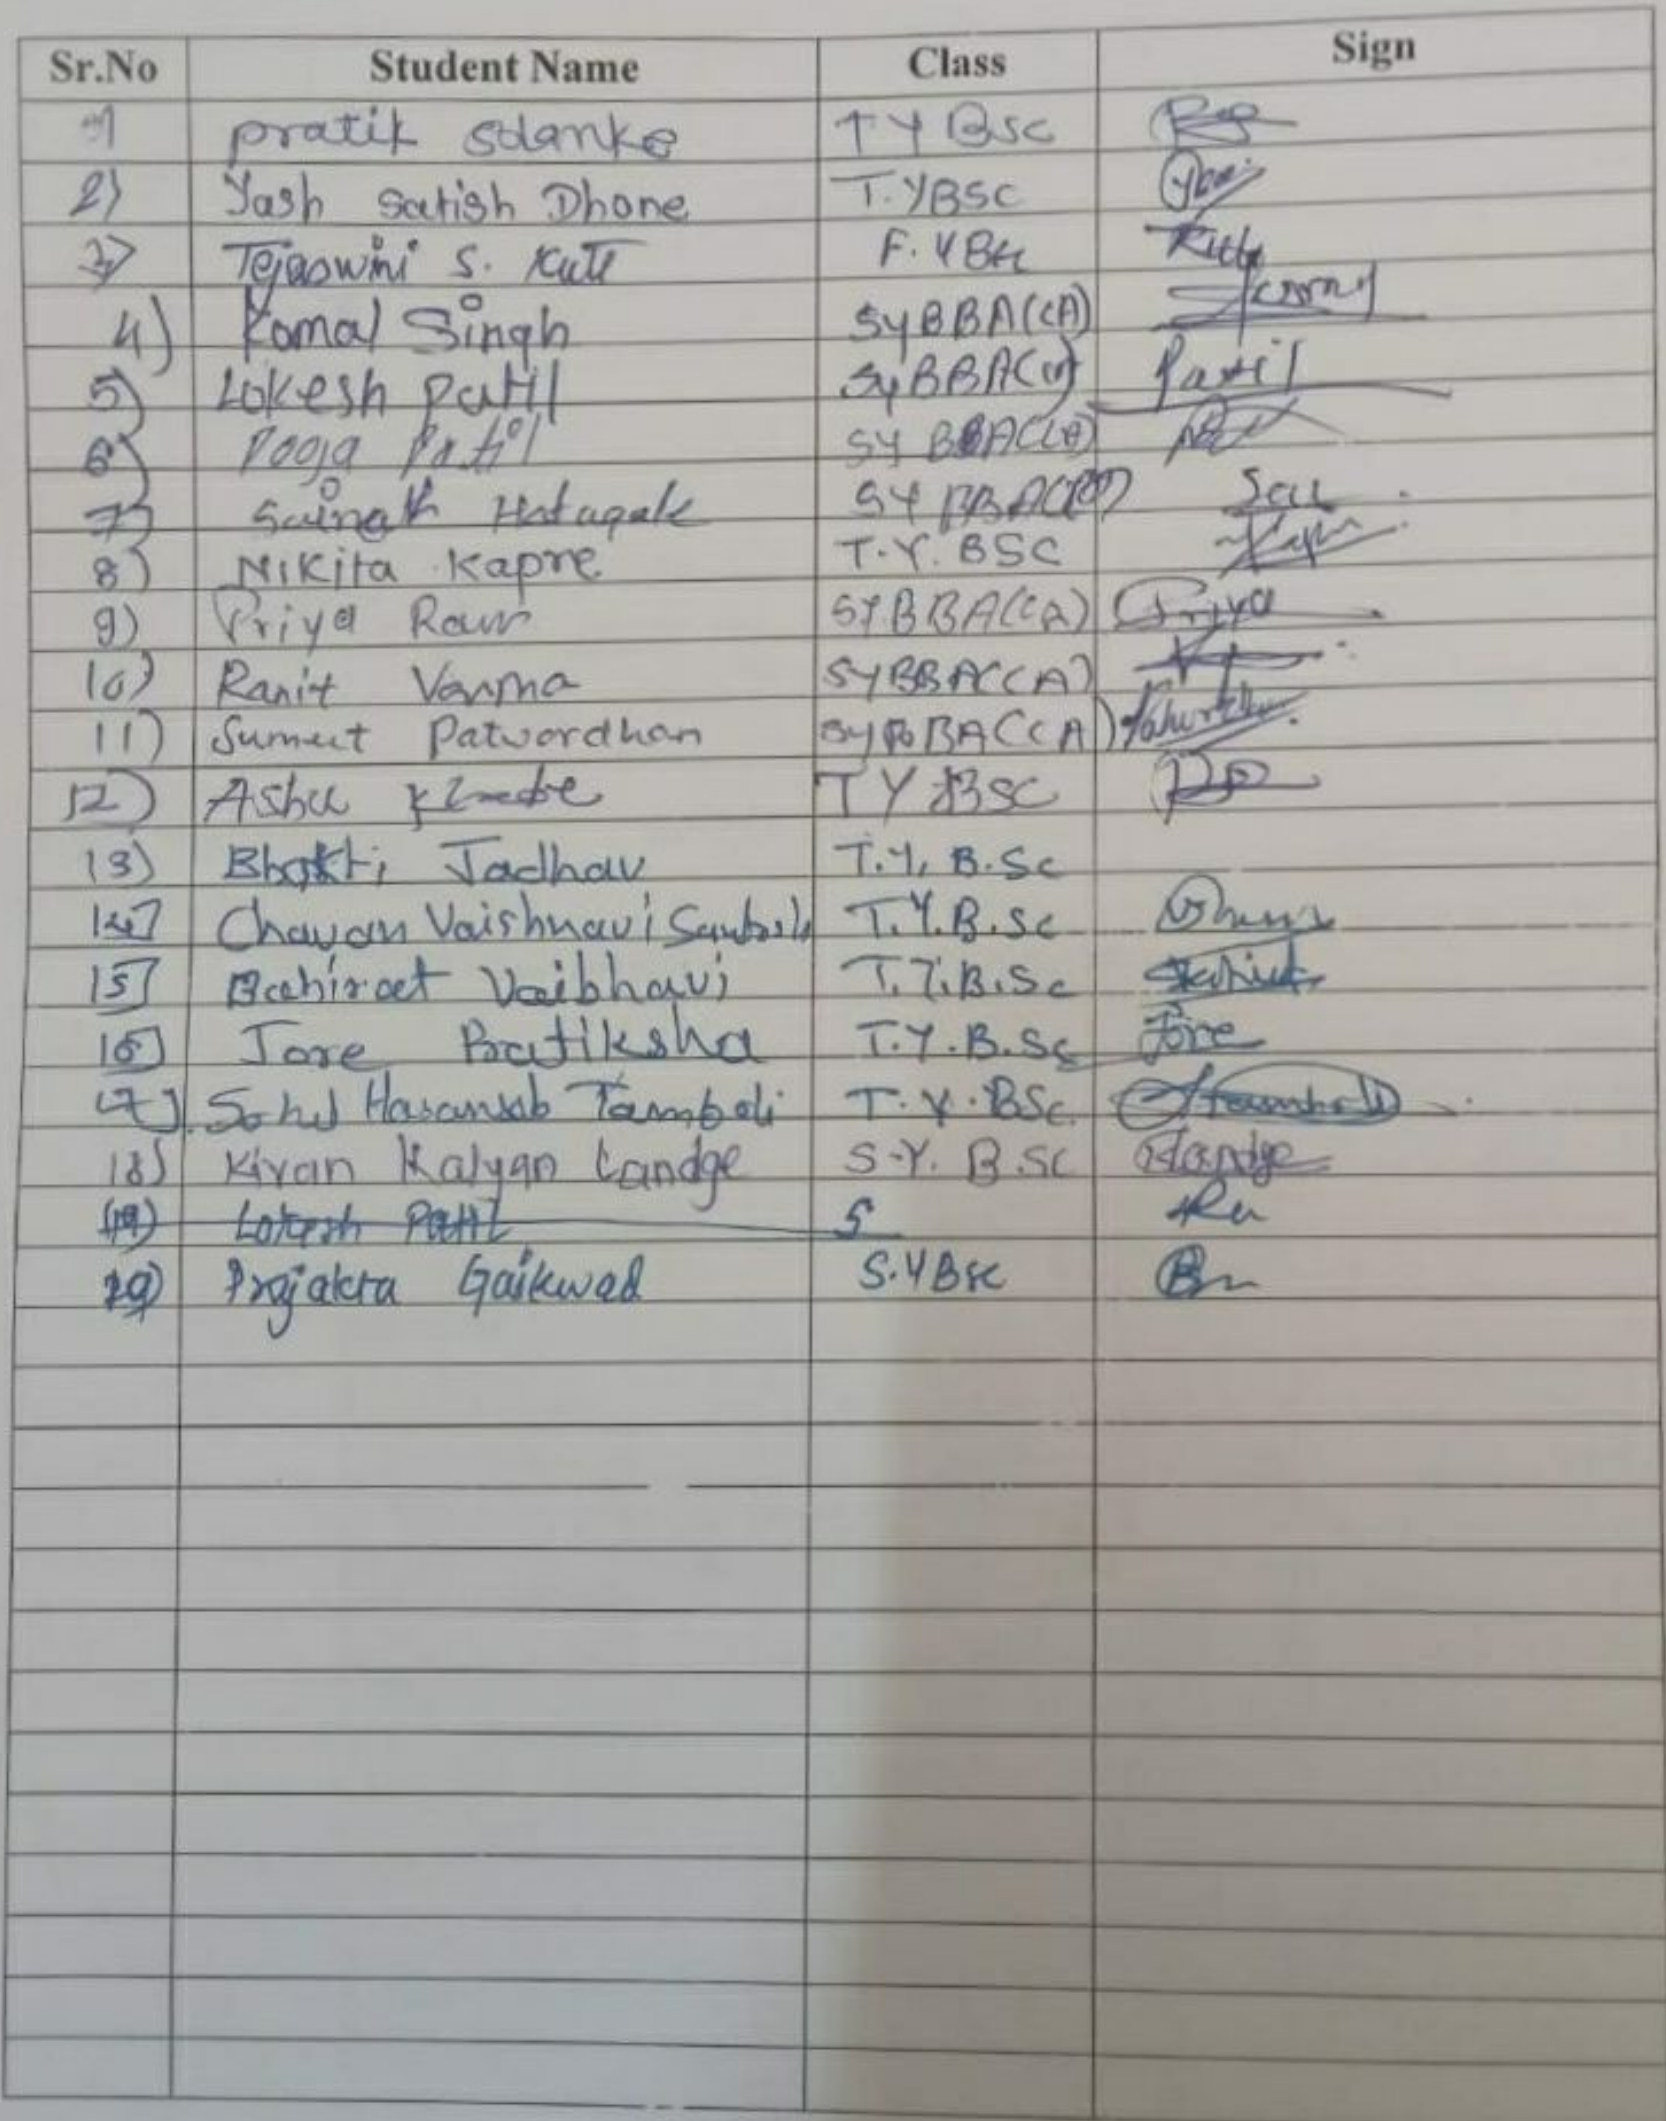 Sr.No Student Name Class Sign
1) pratik solanke TY BSC
2) Yash Satish Dhone T.YBSC
3) Tejaswini S. F.YBSc
4) Komal Singh SYBBA(CA)
5) Lokesh Patil SyBBA(CA) Patil
6) Pooja Patil SY BBA(CA)
7) Sainath Hatagale SY BBA(CA) Sai
8) Nikita Kapre T.Y. BSC
9) Priya Raw SYBBA(CA) Priya
10) Ranit Varma SYBBA(CA)
11) Sumeet Patwordhan SYBBA(CA)
12) Ashu TY BSC
13) Bhakti Jadhav T.Y. B.Sc
14] Chavan Vaishnavi T.Y.B.Sc
15] Bahirat Vaibhavi T.Y.B.Sc
16] Jore Pratiksha T.Y.B.Sc Jore
17]. Sohel Hasansab Tamboli T.Y.BSc.
18) Kiran Kalyan Landge S.Y. B.Sc Landge
(19) Lokesh Patil S
19) Prajakta Gaikwad S.YBSc